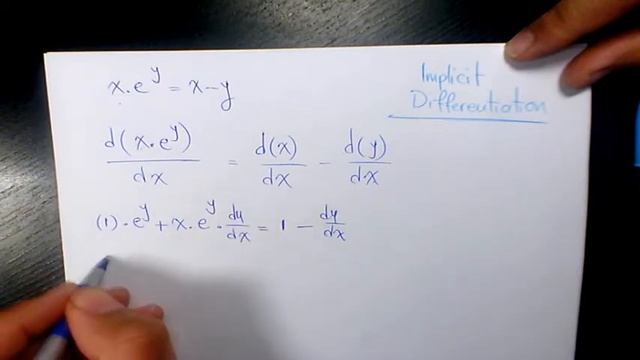 x·e^y = x-y
Implicit
Differentiation
d(x·e^y)/dx = d(x)/dx - d(y)/dx
(1)·e^y + x·e^y·dy/dx = 1 - dy/dx